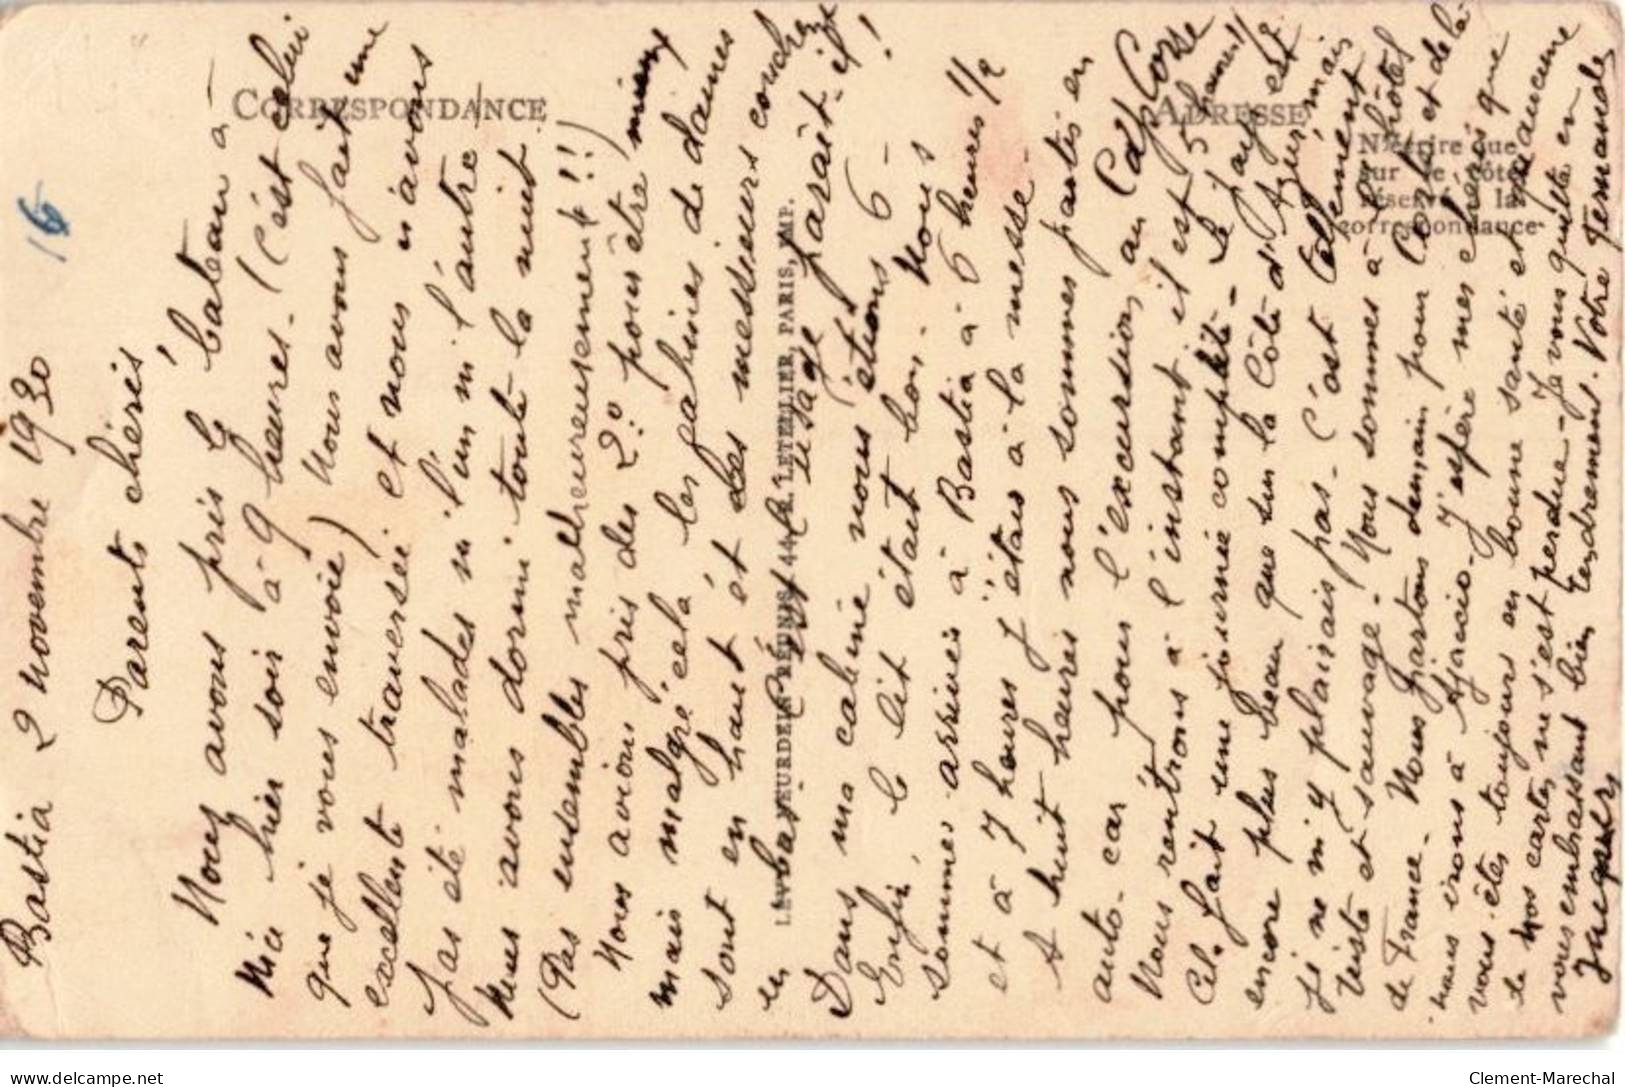 Bastia 2 novembre 1930
16
Parents chéris,
Nous avons pris le bateau à
Nice hier soir à 9 heures. (C'est celui
que je vous envoie) Nous avons fait une
excellente traversée et nous n'avons
pas été malades ni l'un ni l'autre !
Nous avons dormi toute la nuit.
(Pas ensembles malheureusement !!)
Nous avions pris des 2° pour être mieux
mais malgré cela les cabines de dames
sont en haut et des messieurs couchent
en bas C'est l'usage paraît-il !
Dans ma cabine nous étions 6 -
Enfin, le lit était bon. Nous
sommes arrivés à Bastia à 6 heures 1/2
et à 7 heures j'étais à la messe.
A huit heures nous sommes partis en
auto-car pour l'excursion au Cap Corse
Nous rentrons à l'instant il est 5 heures 1/2
Cel. fait une journée complète - Le pays est
encore plus beau que sur la Côte d'Azur, mais
je ne m'y plairais pas. C'est tellement
triste et sauvage. Nous sommes à l'hôtel
de France. Nous partons demain pour Corte et de là
nous irons à Ajaccio. J'espère mes chéris que
vous êtes toujours en bonne santé et qu'aucune
de nos cartes ne s'est perdue - Je vous quitte en
vous embrassant bien tendrement. Votre Fernande
Jacques
CORRESPONDANCE
ADRESSE
N'écrire que
sur le côté
réservé à la
correspondance
LEVY ET NEURDEIN RÉUNIS, 44, R. LETELLIER, PARIS, IMP.
Clement-Marechal
delcampe.net